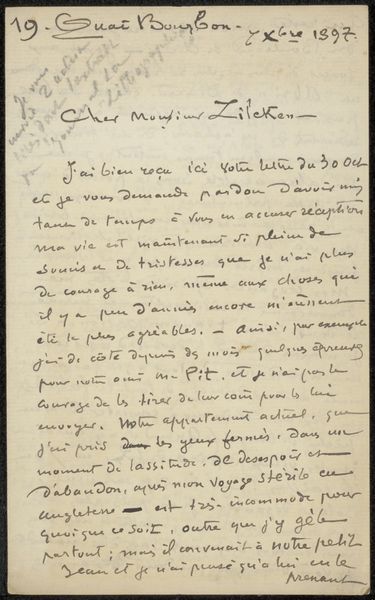 19. Quai Bourbon.
7 Xbre 1897.
Je vous
Cher Monsieur Zilcken
J'ai bien reçu ici votre lettre du 30 Oct
et je vous demande pardon d'avoir mis
tant de temps à vous en accuser réception
ma vie est maintenant si pleine de
soucis et de tristesses que je n'ai plus
de courage à rien, même aux choses qui
il y a peu d'années encore m'eussent
été le plus agréables. — Ainsi, par exemple
j'ai de côté depuis des mois quelques épreuves
pour notre ami Mr Pit, et je n'ai pas le
courage de les tirer de leur coin pour les lui
envoyer. Notre appartement actuel, que
j'ai pris les yeux fermés, dans un
moment de lassitude, de desespoir et
d'abandon, après mon voyage stérile en
Angleterre — est très incommode pour
quoi que ce soit, outre que j'y gèle
partout; mais il convenait à notre petit
Jean et je n'ai pensé qu'à lui en le
prenant